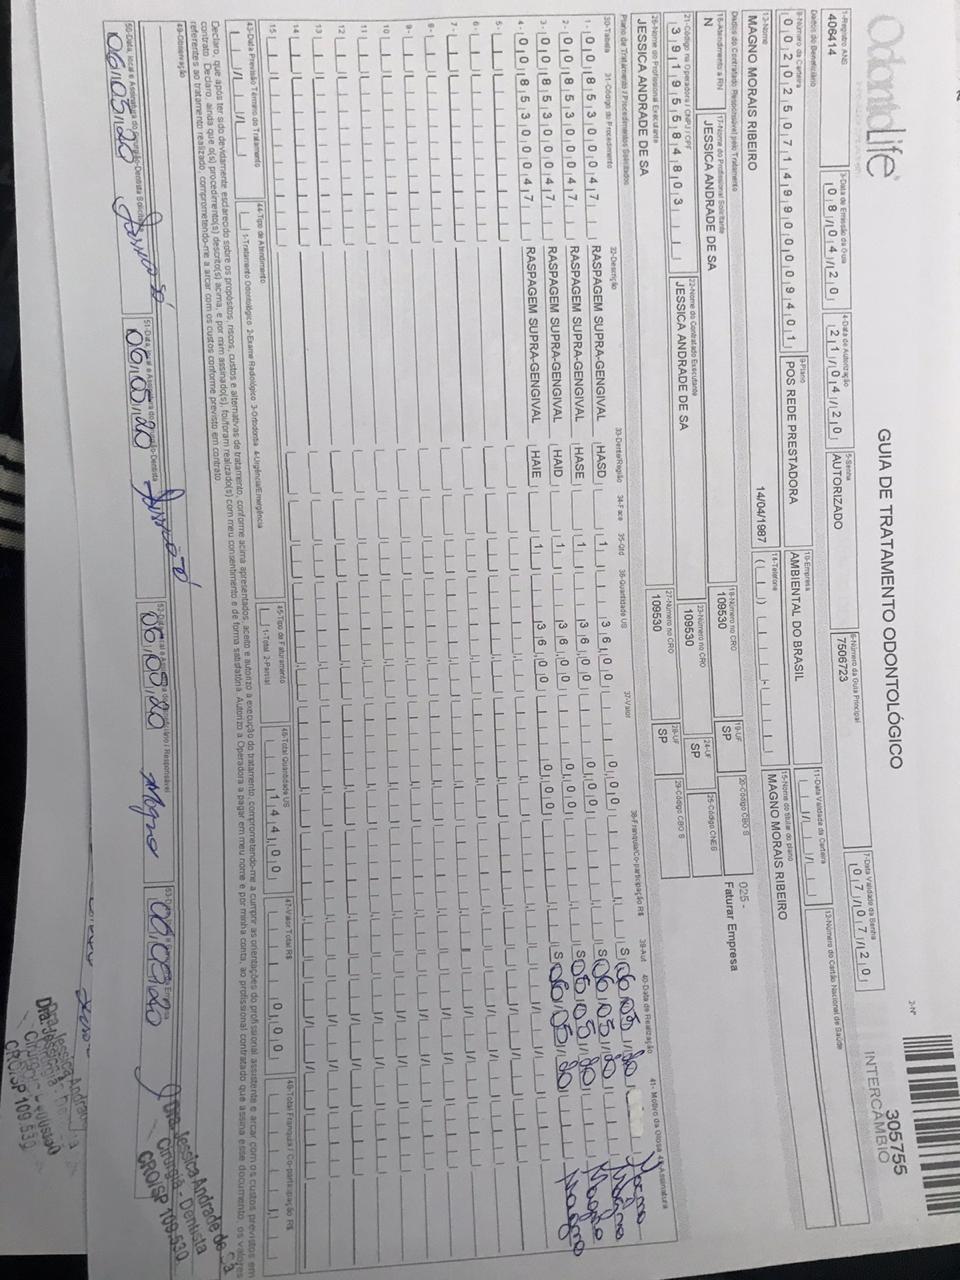 OdontoLife®
GUIA DE TRATAMENTO ODONTOLÓGICO
2-Nº
305755
INTERCÂMBIO
1-Registro ANS
406414
3-Data de Emissão da Guia
08/04/20
4-Data de Autorização
21/04/20
5-Senha
AUTORIZADO
6-Número da Guia Principal
7506723
7-Data Validade da Senha
07/07/20
Dados do Beneficiário
8-Número da Carteira
00202507149900009401
9-Plano
POS REDE PRESTADORA
10-Empresa
AMBIENTAL DO BRASIL
11-Data Validade da Carteira
12-Número do Cartão Nacional de Saúde
13-Nome
MAGNO MORAIS RIBEIRO
14/04/1987
14-Telefone
15-Nome do titular do plano
MAGNO MORAIS RIBEIRO
Dados do Contratado Responsável pelo Tratamento
16-Atendimento a RN
N
17-Nome do Profissional Solicitante
JESSICA ANDRADE DE SA
18-Número no CRO
109530
19-UF
SP
20-Código CBO S
025 -
Faturar Empresa
21-Código na Operadora / CNPJ / CPF
39195584803
22-Nome do Contratado Executante
JESSICA ANDRADE DE SA
23-Número no CRO
109530
24-UF
SP
25-Código CNES
26-Nome do Profissional Executante
JESSICA ANDRADE DE SA
27-Número no CRO
109530
28-UF
SP
29-Código CBO S
Plano de Tratamento / Procedimentos Solicitados
30-Tabela 31-Código do Procedimento 32-Descrição 33-Dente/Região 34-Face 35-Qtd 36-Quantidade US 37-Valor 38-Franquia/Co-participação R$ 39-Aut 40-Data de Realização 41- Motivo da Glosa 42-Assinatura
1- 00 85300047 RASPAGEM SUPRA-GENGIVAL HASD 1 36,00 0,00 S 06/05/20 Magno
2- 00 85300047 RASPAGEM SUPRA-GENGIVAL HASE 1 36,00 0,00 S 06/05/20 Magno
3- 00 85300047 RASPAGEM SUPRA-GENGIVAL HAID 1 36,00 0,00 S 06/05/20 Magno
4- 00 85300047 RASPAGEM SUPRA-GENGIVAL HAIE 1 36,00 0,00 S 06/05/20 Magno
5-
6-
7-
8-
9-
10
11
12
13
14
15
43-Data Previsão Término do Tratamento
44-Tipo de Atendimento
1-Tratamento Odontológico 2-Exame Radiológico 3-Ortodontia 4-Urgência/Emergência
45-Tipo de Faturamento
1-Total 2-Parcial
46-Total Quantidade US
144,00
47-Valor Total R$
0,00
48-Total Franquia / Co-participação R$
Declaro, que após ter sido devidamente esclarecido sobre os propósitos, riscos, custos e alternativas de tratamento, conforme acima apresentados, aceito e autorizo a execução do tratamento, comprometendo-me a cumprir as orientações do profissional assistente e arcar com os custos previstos em
contrato. Declaro, ainda que o(s) procedimento(s) descrito(s) acima, e por mim assinado(s), foi/foram realizado(s) com meu consentimento e de forma satisfatória. Autorizo a Operadora a pagar em meu nome e por minha conta, ao profissional contratado que assina esse documento, os valores
referentes ao tratamento realizado, comprometendo-me a arcar com os custos conforme previsto em contrato.
49-Observação
50-Data, local e Assinatura do Cirurgião-Dentista Solicitante
06/05/20
51-Data, local e Assinatura do Cirurgião-Dentista
06/05/20
06/05/20 Magno
Dra. Jessica Andrade de Sá
Cirurgiã - Dentista
CRO/SP 109.530